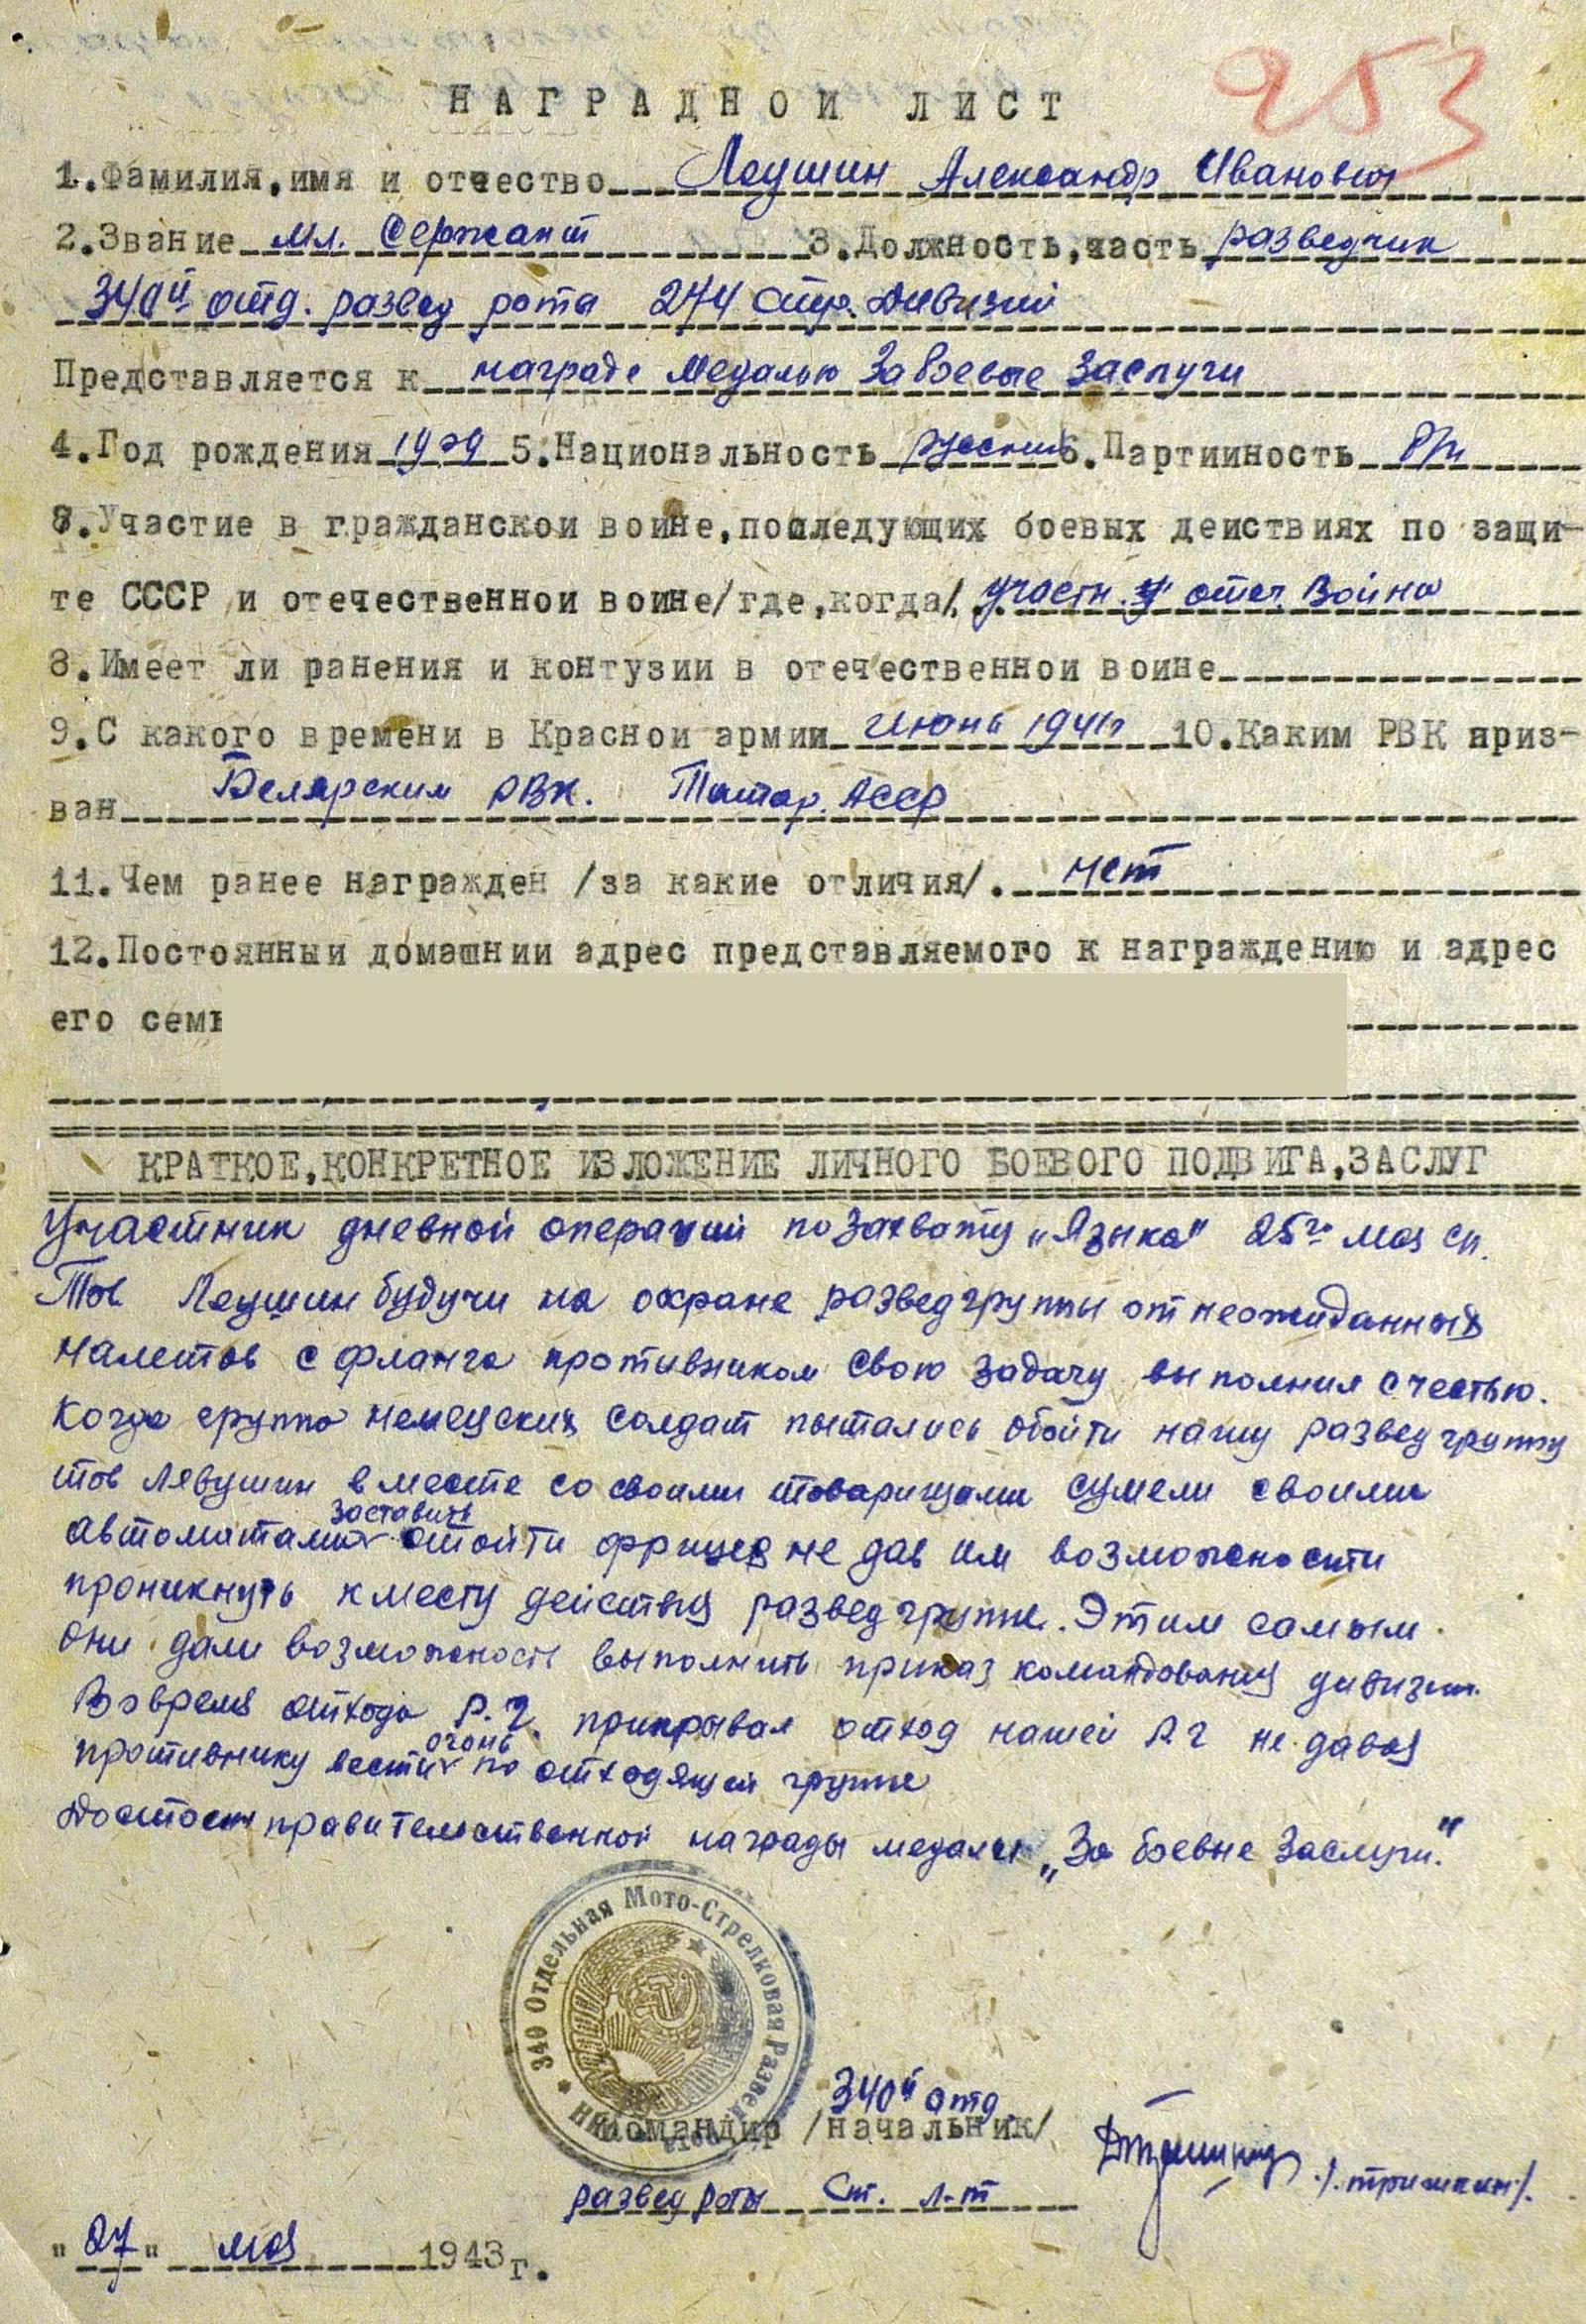 253
НАГРАДНОИ ЛИСТ
1.Фамилия,имя и отчество Леушин Александр Иванович
2.Звание мл. Сержант 3.Должность,часть разведчик
340й отд. развед рота 274 стр. дивизии
Представляется к награде медалью За боевые заслуги
4.Год рождения 1909 5.Национальность русский 6.Партииность б/п
7.Участие в гражданскои воине,последующих боевых деиствиях по защи-
те СССР и отечественнои воине/где,когда/. участн. отеч. война
8.Имеет ли ранения и контузии в отечественнои воине
9.С какого времени в Краснои армии Июнь 1941г 10.Каким РВК приз-
ван Белярским РВК. Татар. АССР
11.Чем ранее награжден /за какие отличия/. нет
12.Постоянныи домашнии адрес представляемого к награждению и адрес
его семь
КРАТКОЕ,КОНКРЕТНОЕ ИЗЛОЖЕНИЕ ЛИЧНОГО БОЕВОГО ПОДВИГА,ЗАСЛУГ
Участник дневной операции по захвату „Языка" 25го мая
Тов Леушин будучи на охране разведгруппы от неожиданных
налетов с фланга противником свою задачу выполнил с честью.
Когда группа немецких солдат пытались обойти нашу развед группу
тов Лявушин вместе со своими товарищами сумели своими
автоматами заставить отойти фрицев не дав им возможности
проникнуть к месту действия развед группе. Этим самым
они дали возможность выполнить приказ командования дивизии.
Вовремя отхода Р.Г. прикрывал отход нашей Р.Г не давая
противнику вести огонь по отходящей группе
Достоин правительственной награды медали „За боевые Заслуги."
340 Отдельная Мото-Стрелковая Развед рота НКО
340й отд
Командир /начальник/
развед роты Ст. л-т /.тришкин./
"27" мая 1943 г.